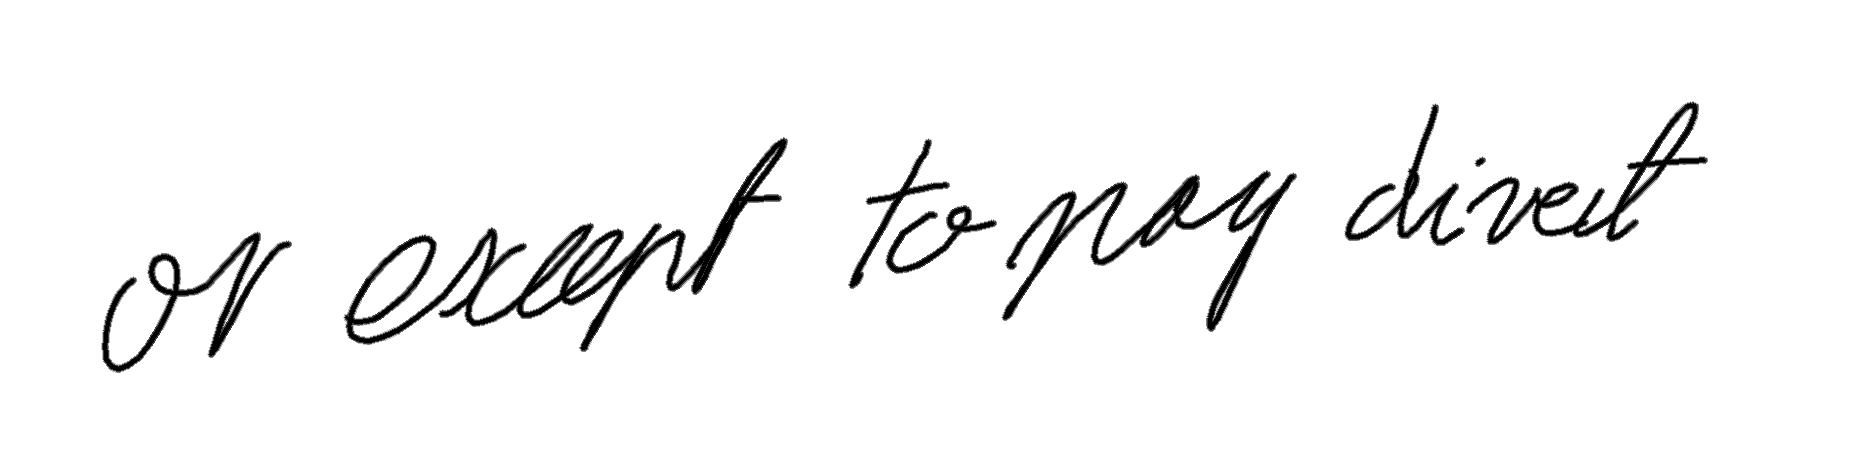 or except to pay direct